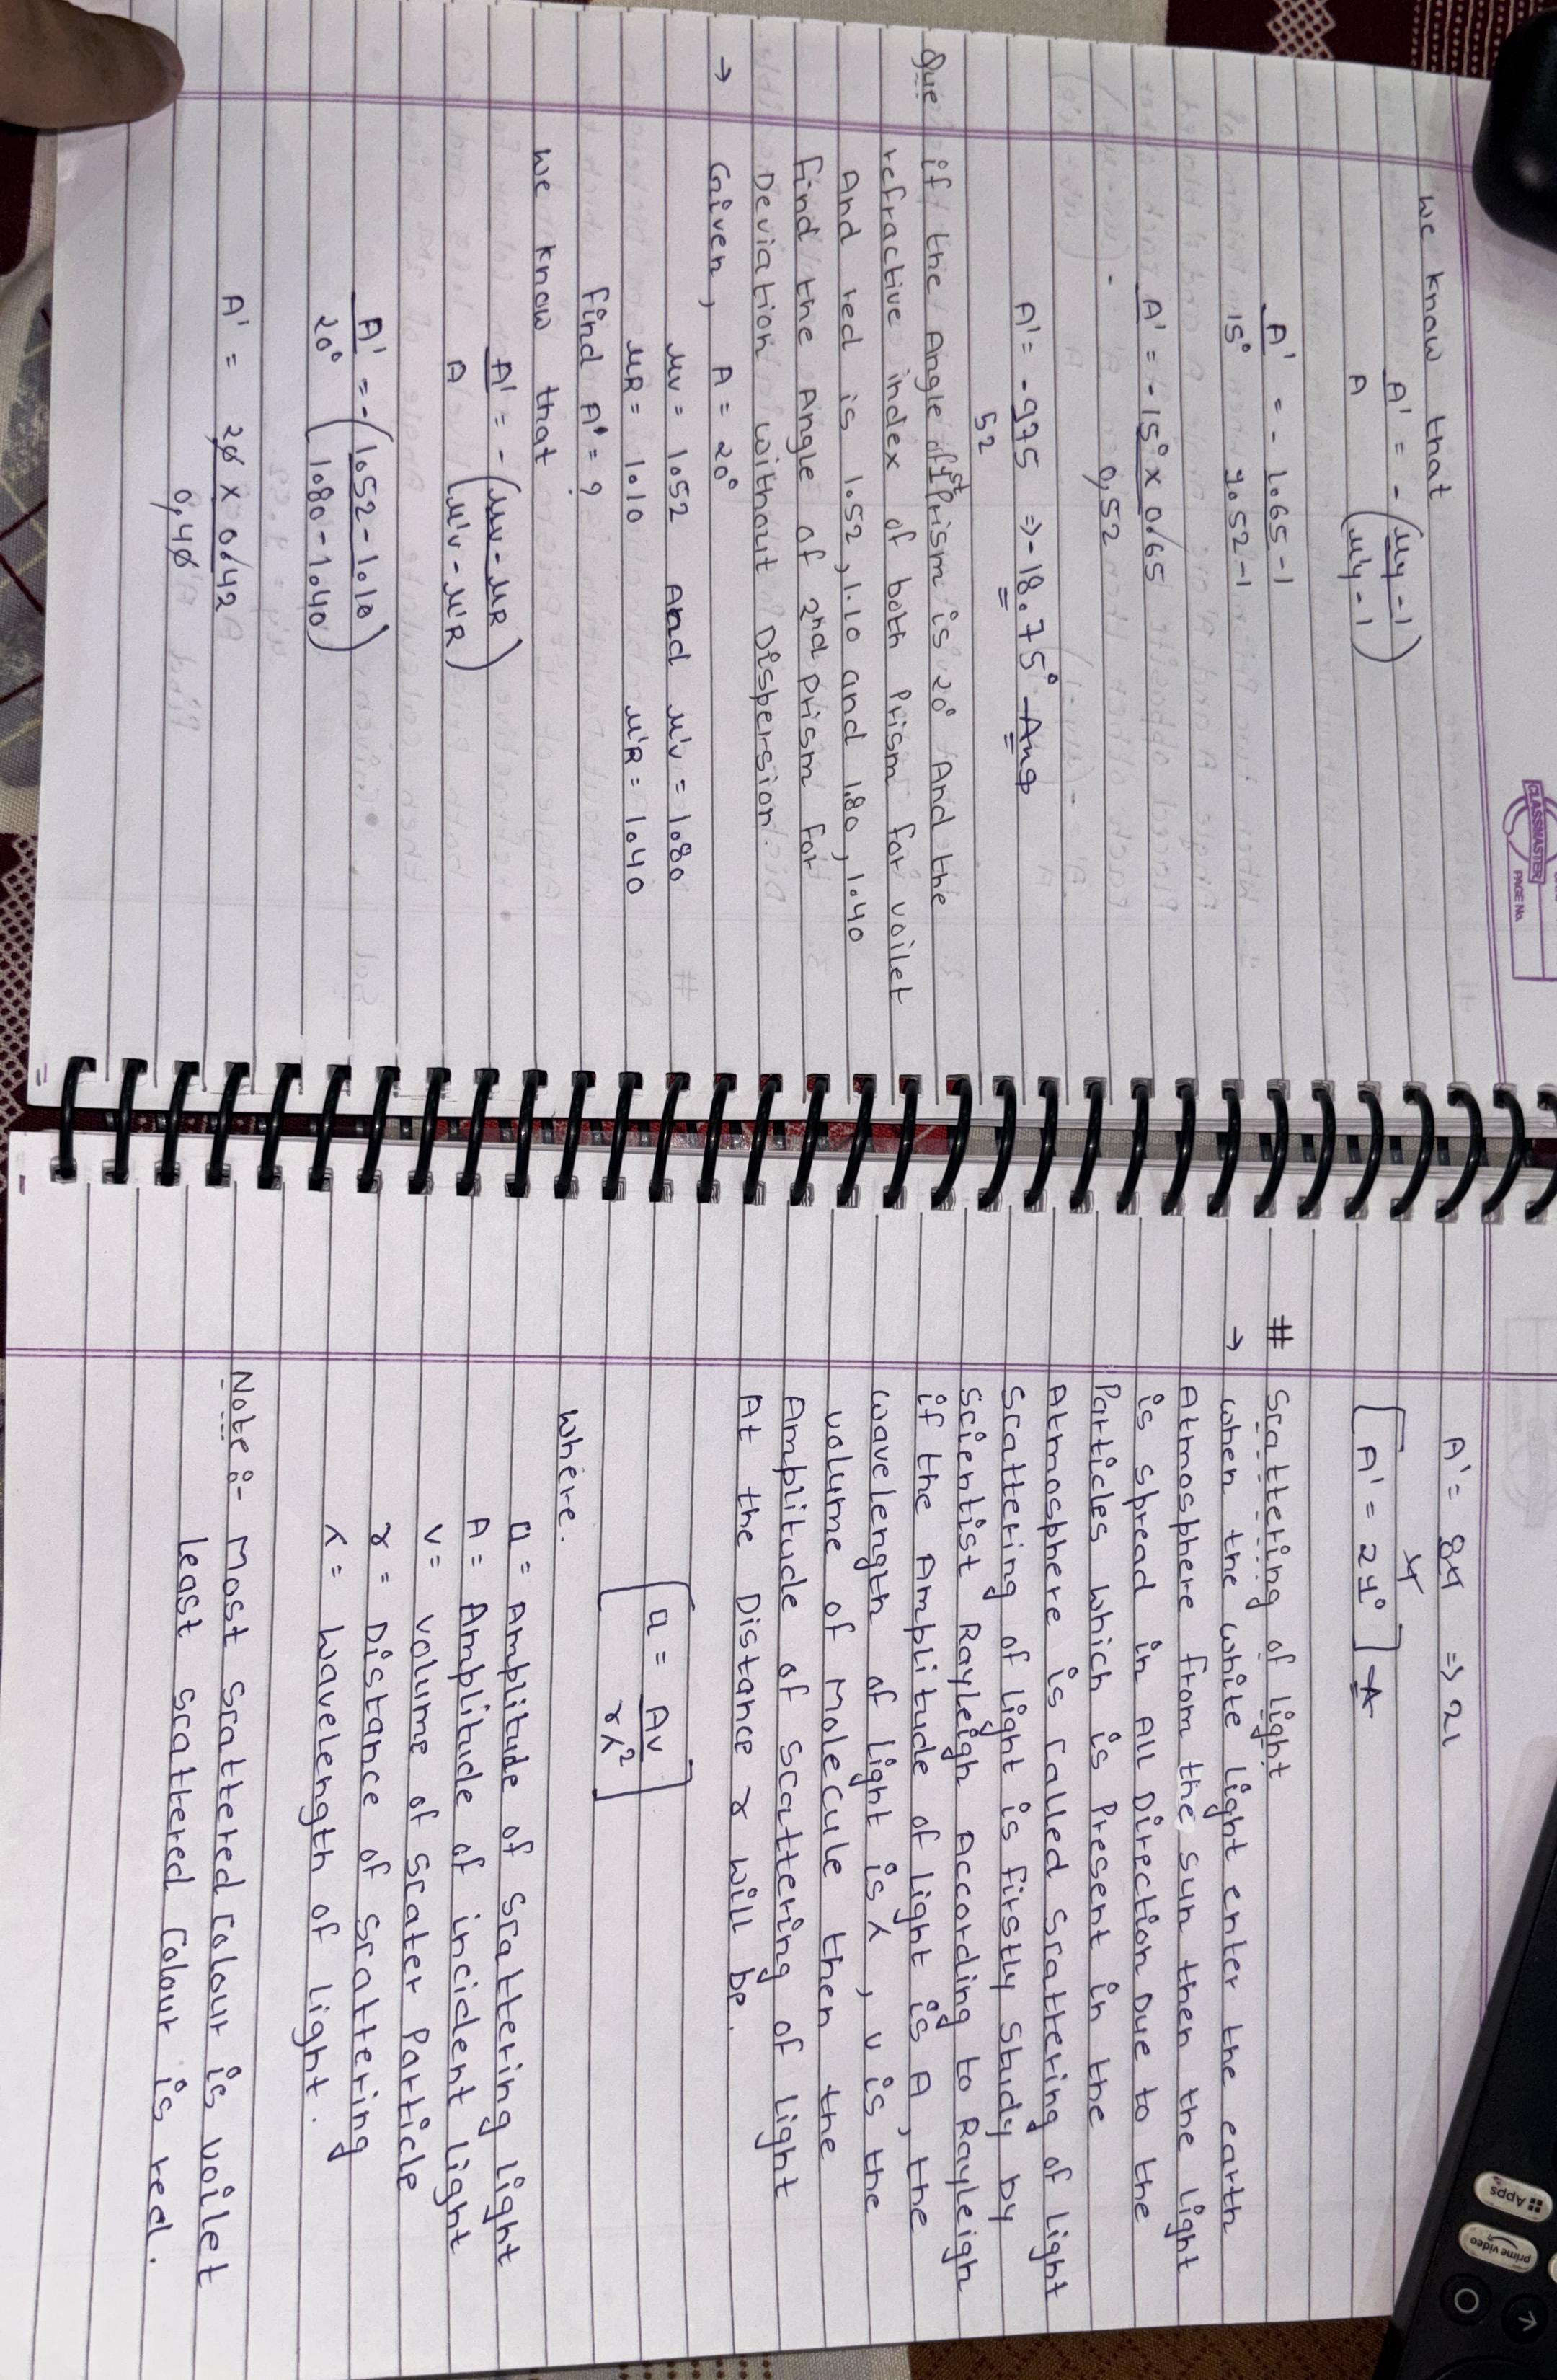 CLASSMATER
PAGE No.
We know that
A' = - (μy - 1)
A (μ'y - 1)
A' = - 1.65 - 1
15° 1.52 - 1
A' = - 15° x 0.65
0.52
A' = - 975 => - 18.75° Ans
52
Que if the Angle of 1st Prism is 20° And the
refractive index of both Prism for voilet
And red is 1.52, 1.10 and 1.80, 1.40
find the Angle of 2nd prism for
Deviation without Dispersion.
→ Given, A = 20°
μv = 1.52 And μ'v = 1.80
μR = 1.10 μ'R = 1.40
find A' = ?
We know that
A' = - (μv - μR)
A (μ'v - μ'R)
A' = - (1.52 - 1.10)
20° (1.80 - 1.40)
A' = 20 x 0.42
0.40
A' = 84 => 21
4
[A' = 21°] A
# Scattering of light
→ When the white light enter the earth
Atmosphere from the sun then the light
is spread in All Direction Due to the
Particles which is Present in the
Atmosphere is called scattering of light
Scattering of light is firstly study by
Scientist Rayleigh According to Rayleigh
if the Amplitude of light is A, the
wavelength of light is λ, v is the
volume of Molecule then the
Amplitude of scattering of light
At the Distance r will be.
[a = Av
rλ²]
Where.
a = Amplitude of scattering light
A = Amplitude of incident light
v = volume of scater Particle
r = Distance of scattering
λ = Wavelength of light.
Note :- Most scattered colour is voilet
least scattered colour is red.
Apps
prime video